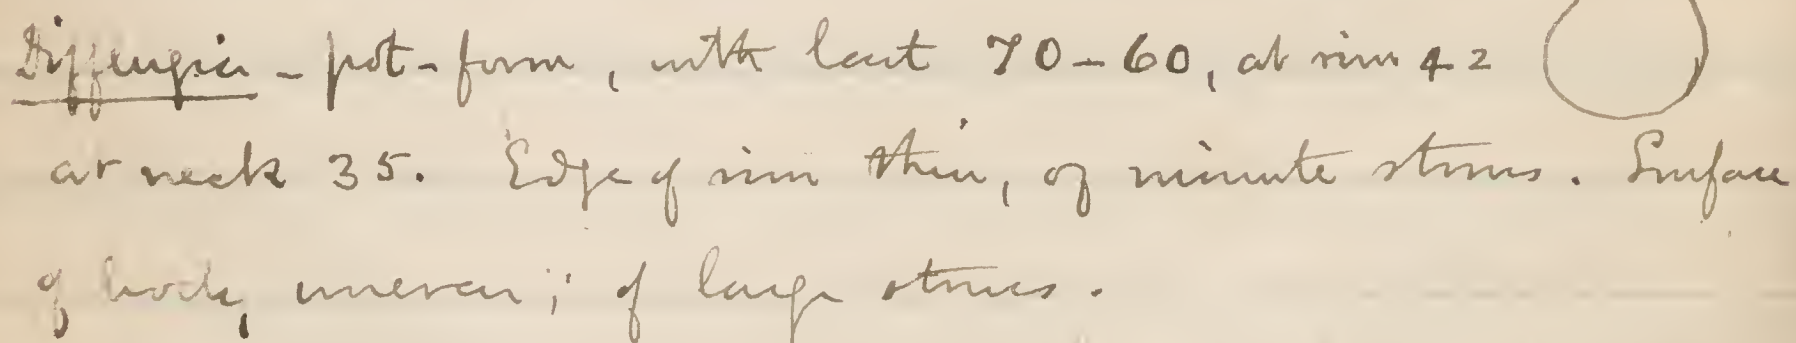 Difflugia - pot-form, with last 70-60, at rim 42
at neck 35. Edge of rim thin, of minute stones. Surface
of body uneven; of large stones.